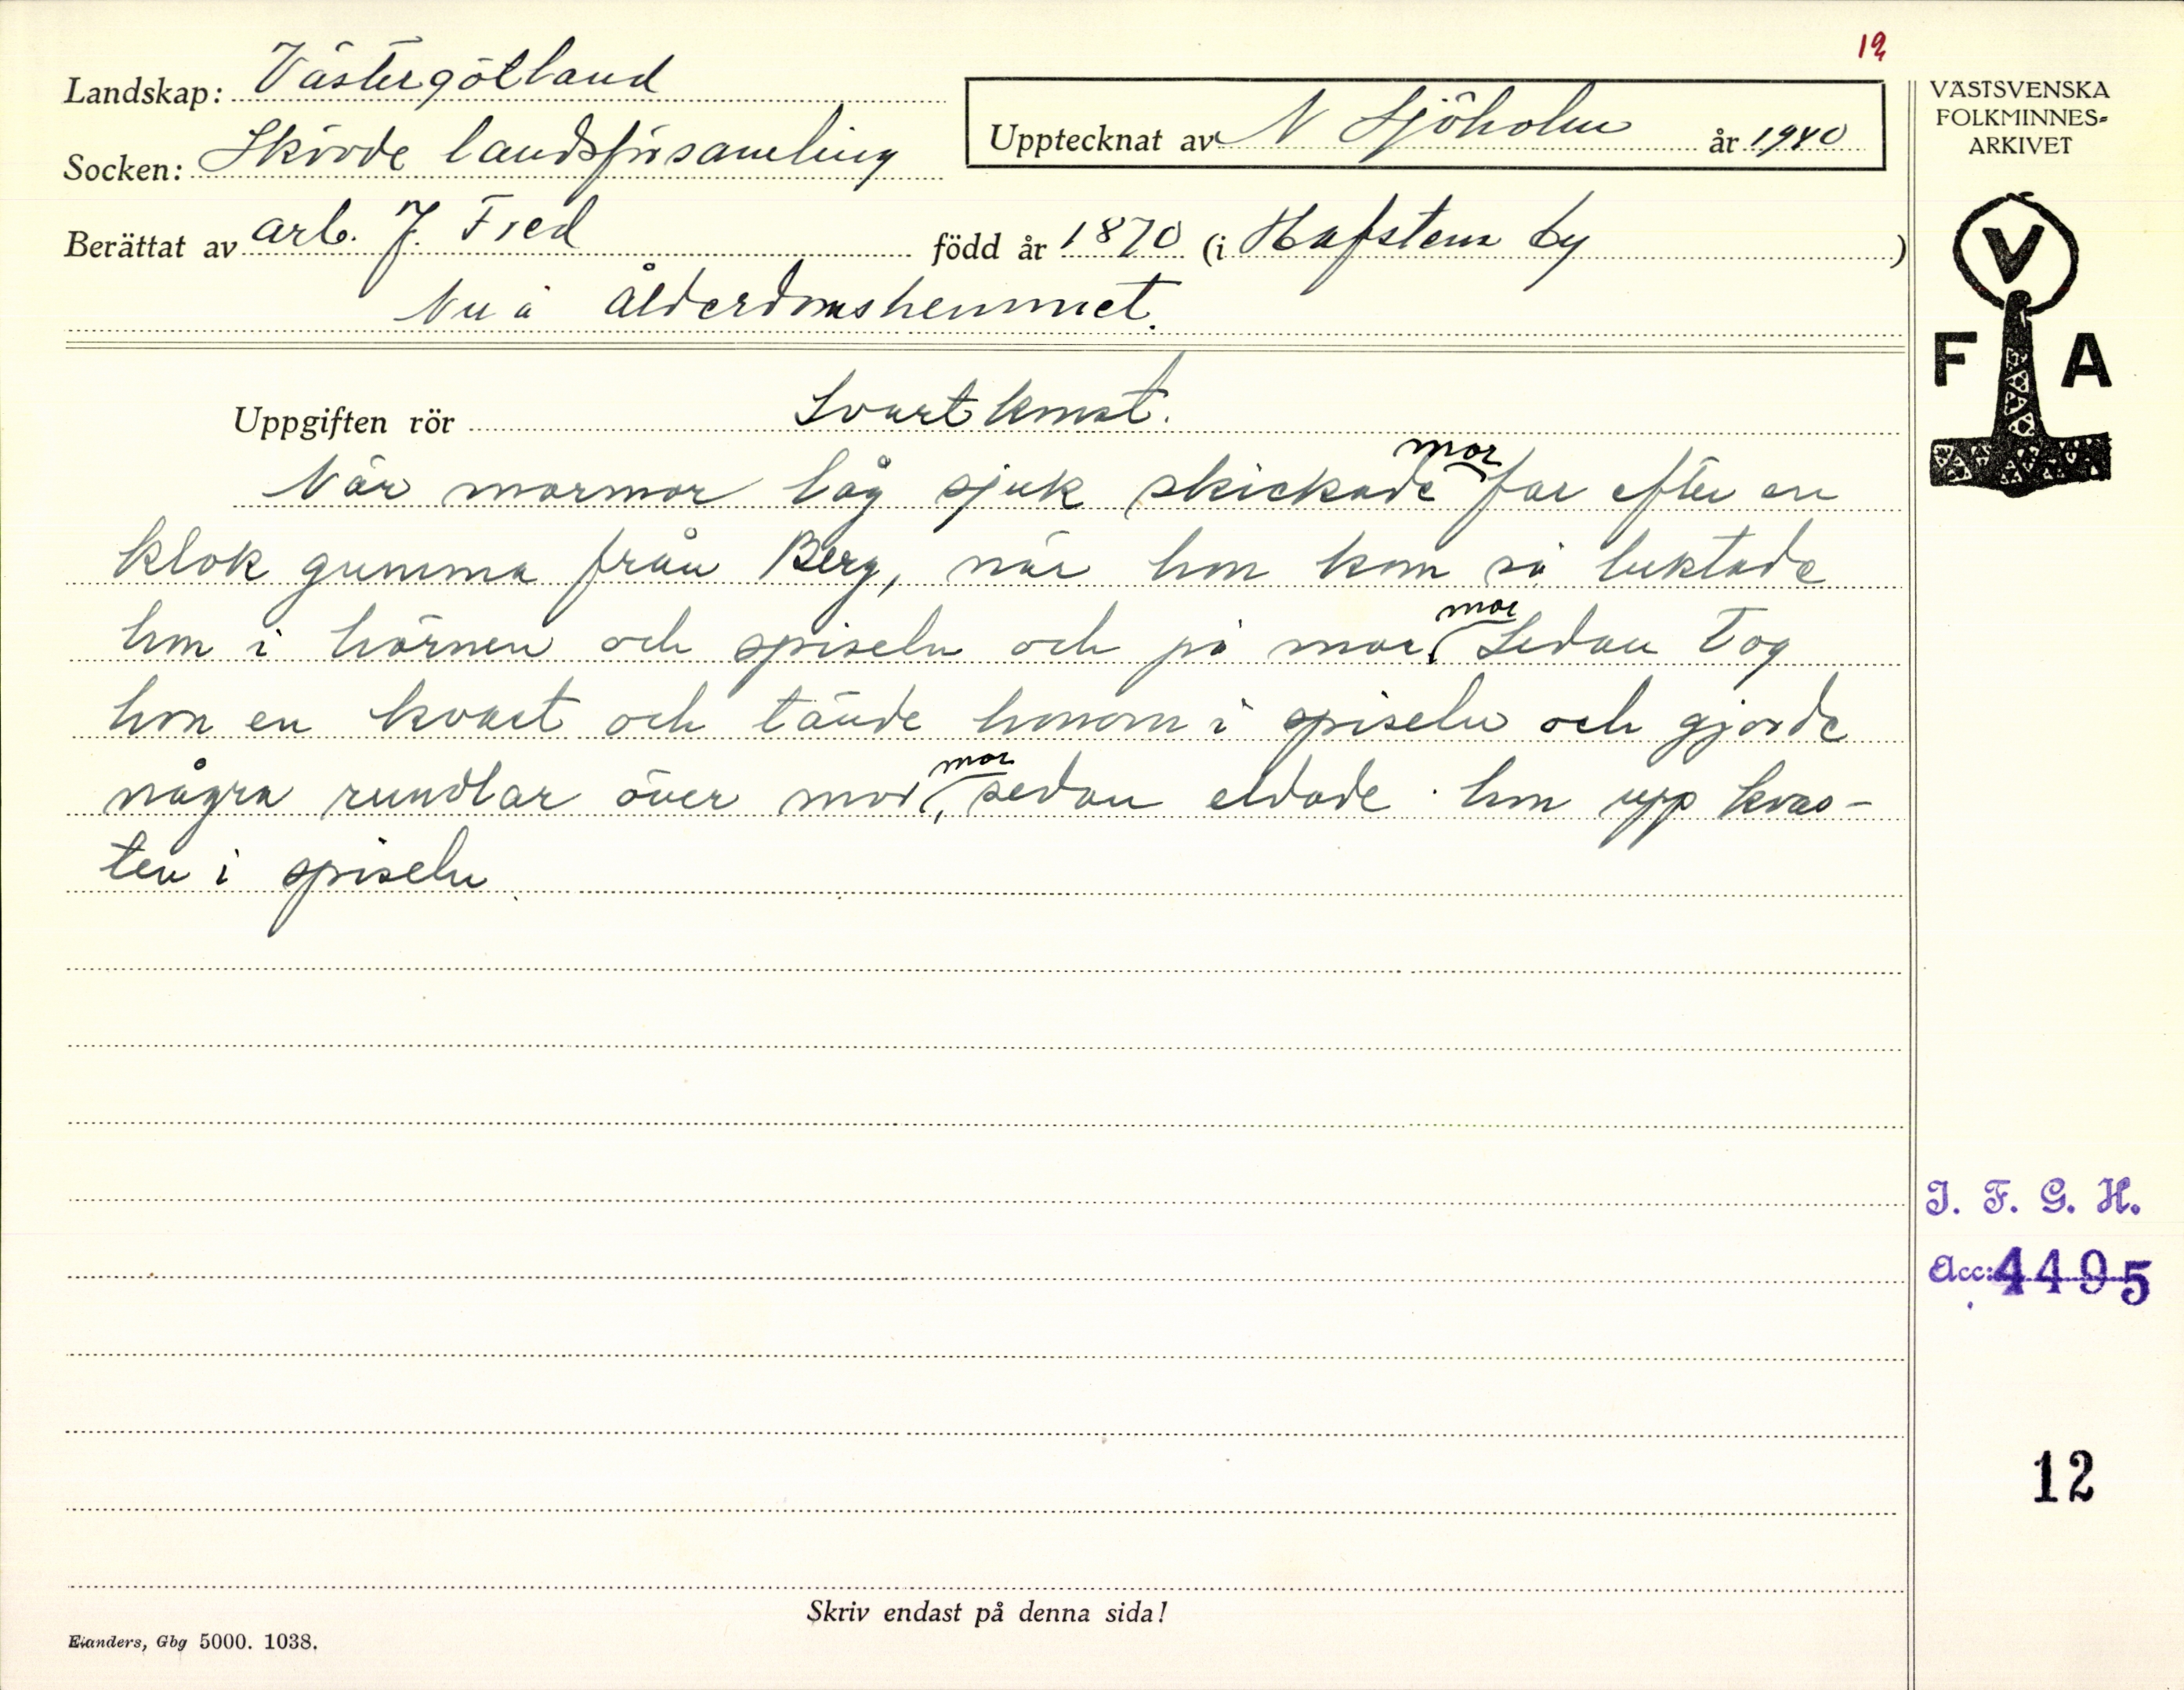 12
Landskap: Västergötland
Socken: Skövde landsförsamling
Upptecknat av N Sjöholm år 1940
Berättat av arb. J. Fred född år 1870 (i Hafstena by)
Nu å Ålderdomshemmet.
VÄSTSVENSKA
FOLKMINNES=
ARKIVET
V
F A
Uppgiften rör Svartkonst.
mor
När mormor låg sjuk skickade far efter en
klok gumma från Berg, när hon kom så luktade
mor
hon i hörnen och spiseln och på mor. Sedan tog
hon en kvast och tände honom i spiseln och gjorde
mor
några rundlar över mor, sedan eldade hon upp kvas-
ten i spiseln.
I. F. G. H.
Acc: 4495
12
Skriv endast på denna sida!
Elanders, Gbg 5000. 1038.